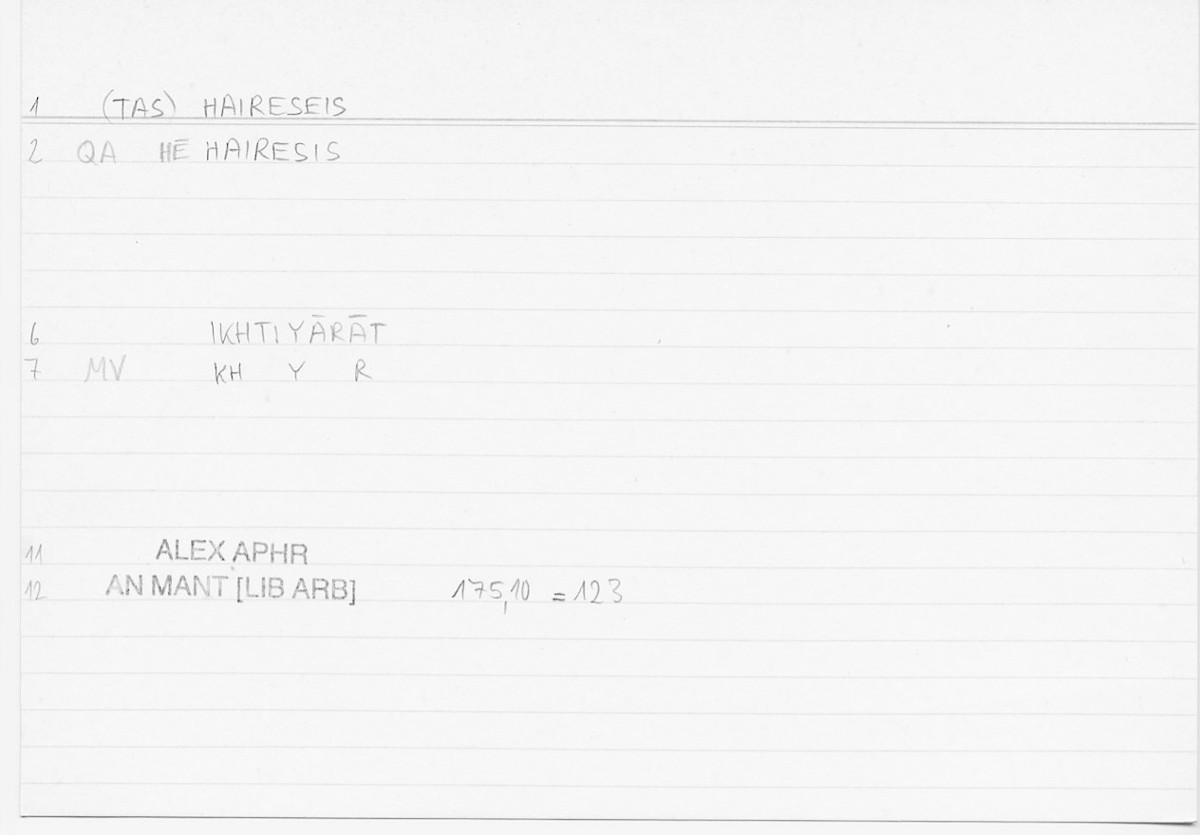 1 (TAS) HAIRESEIS
2 QA HĒ HAIRESIS
6 IKHTIYĀRĀT
7 MV KH Y R
11 ALEX APHR
12 AN MANT [LIB ARB] 175,10 = 123